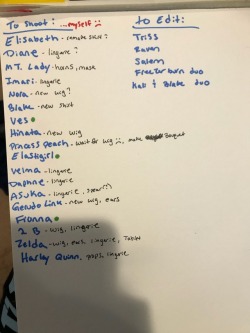 To Shoot: ...myself
Elisabeth - remote skirt?
Diane - lingerie?
MT. Lady - horns, mask
Imari - lingerie
Nora - new wig?
Blake - new shirt
Yes
Hinata - new wig
Princess Peach - wait for wig, make Bouquet
Elastigirl
Velma - lingerie
Daphne - lingerie
Asuka - lingerie, spear??
Gerudo Link - new wig, ears
Fionna
2B - wig, lingerie
Zelda - wig, ears, lingerie, Tablet
Harley Quinn, props, lingerie
To Edit:
Triss
Raven
Salem
Freezerburn duo
Kali & Blake duo